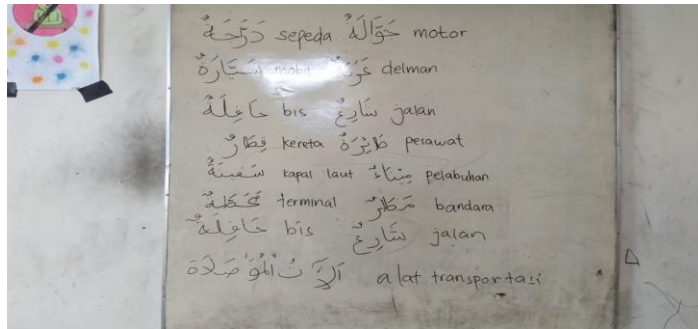 دَرَّجَةٌ sepeda حَوَّالَةٌ motor
سَيَّارَةٌ mobil عَرَبَةٌ delman
حَافِلَةٌ bis شَارِعٌ jalan
قِطَارٌ kereta طَائِرَةٌ perawat
سَفِينَةٌ kapal laut مِيْنَاءٌ pelabuhan
مَحَطَّةٌ terminal مَطَارٌ bandara
حَافِلَةٌ bis شَارِعٌ jalan
اَلآتُ الْمُوَاصَلَاة alat transportasi